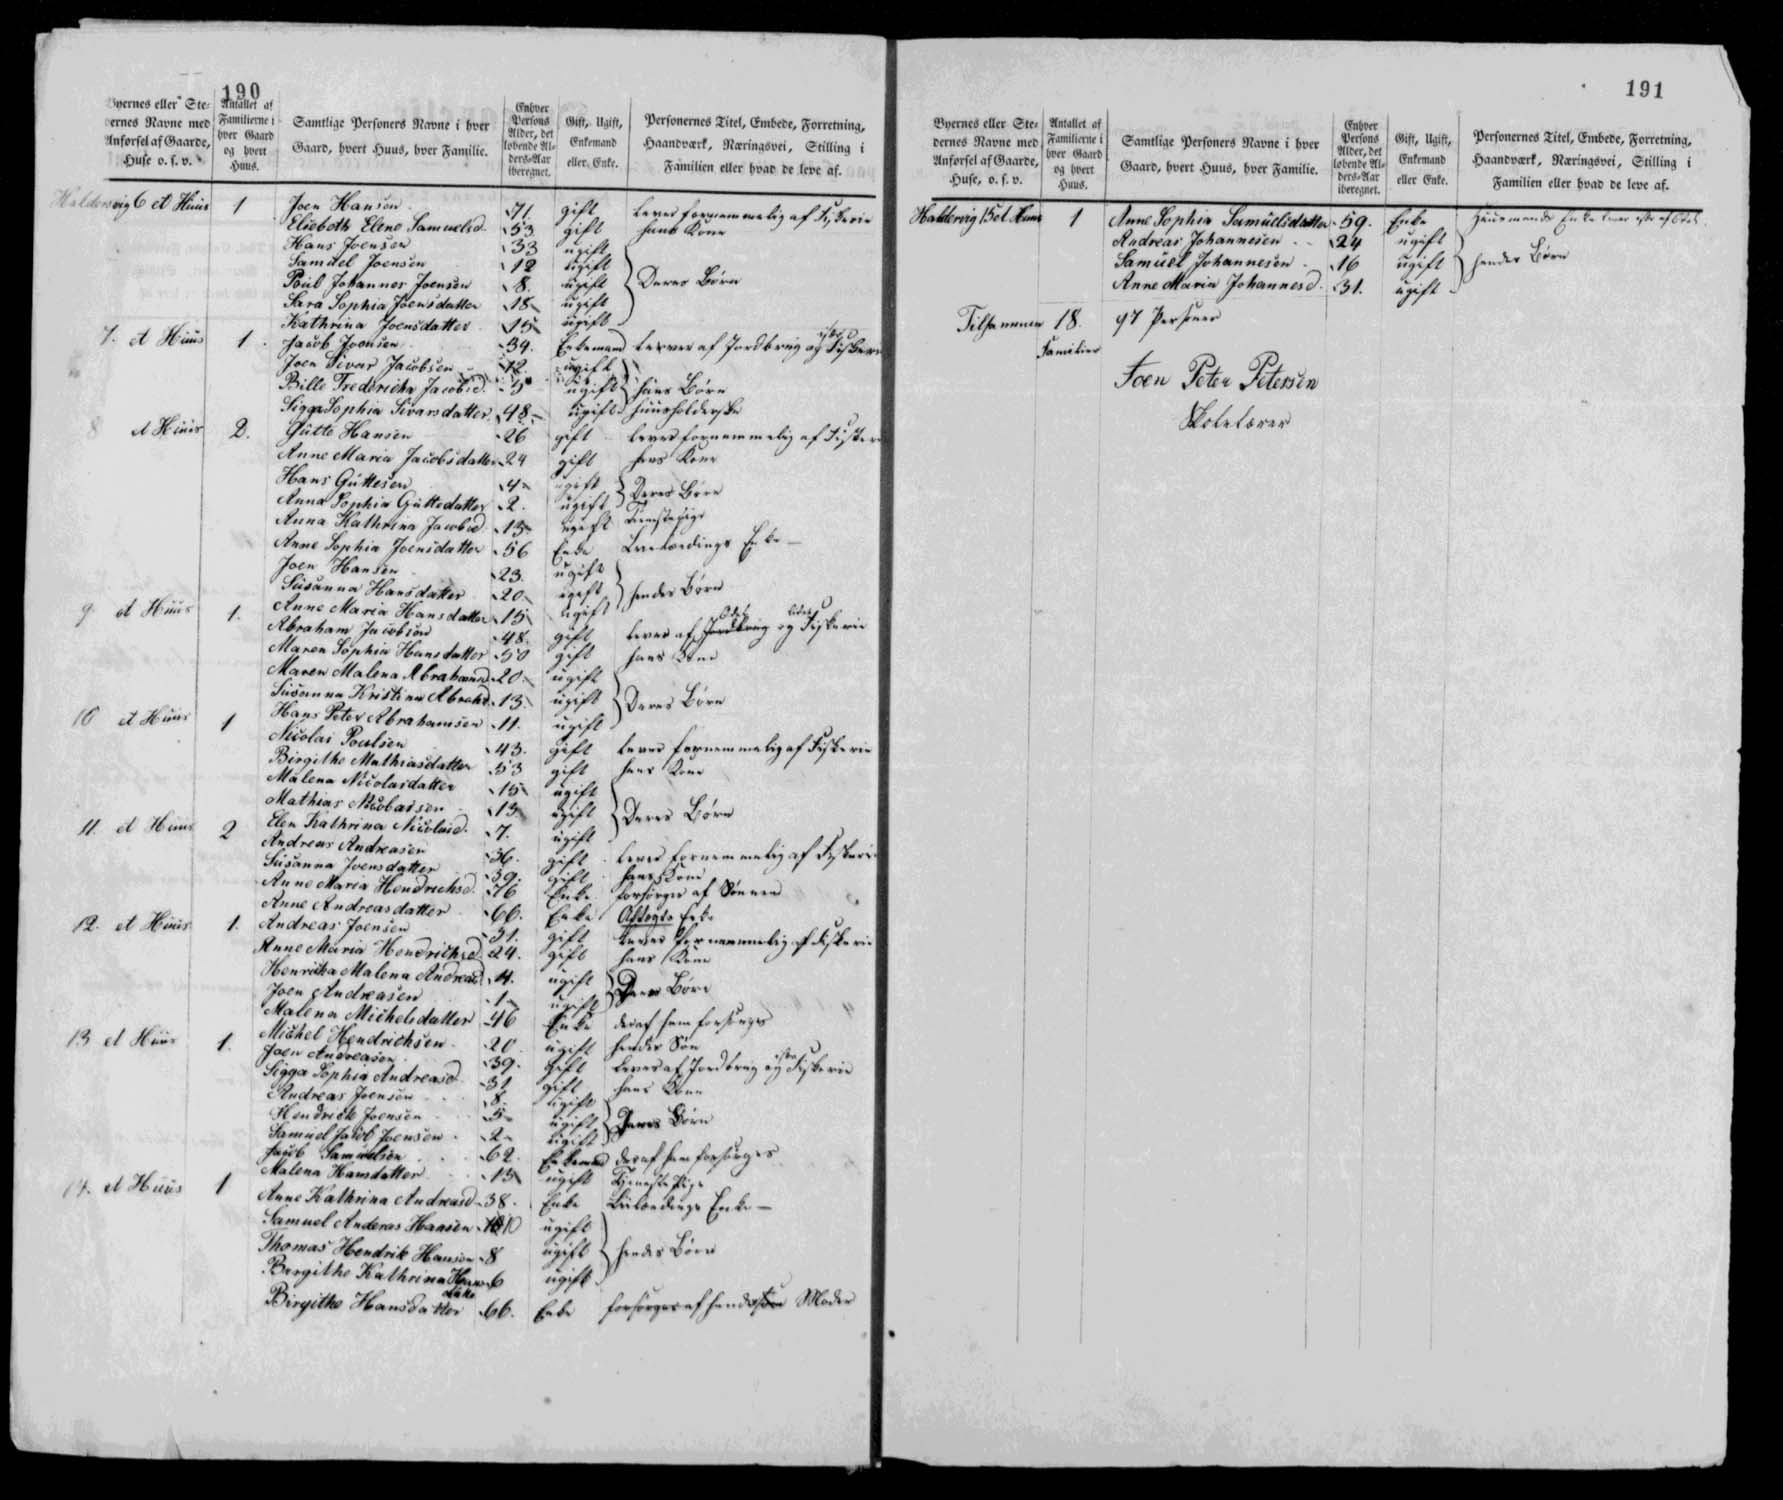 190
Byernes eller Ste-
dernes Navne med
Anførsel af Gaarde,
Huse o. s. v.
Antallet af
Familierne i
hver Gaard
og hvert
Huus.
Samtlige Personers Navne i hver
Gaard, hvert Huus, hver Familie.
Enhver
Persons
Alder, det
løbende Al-
ders-Aar
iberegnet.
Gift, Ugift,
Enkemand
eller Enke.
Personernes Titel, Embede, Forretning,
Haandværk, Næringsvei, Stilling i
Familien eller hvad de leve af.
Haldersvig 6 et Huus 1 Joen Hansen 71. gift lever fornemmelig af Fiskerie
Elisbeth Elene Samuelsd. 53 gift hans Kone
Hans Joensen 33 ugift
Samuel Joensen 12 ugift
Poul Johannes Joensen 8. ugift Deres Børn
Sara Sophia Joensdatter 18 ugift
Kathrina Joensdatter 15 ugift
7. et Huus 1. Jacob Joensen 39. Enkemand lever af Jordbrug og Fiskerie
Joen Sivar Jacobsen 12 ugift
Bille Fredericka Jacobsd. 5 ugift hans Børn
Sigga Sophia Sivarsdatter 48 ugift huusholderske
8 et Huus 2. Gutte Hansen 26 gift lever fornemmelig af Fiskerie
Anne Maria Jacobsdatter 24 gift hans Kone
Hans Guttesen 4 ugift Deres Børn
Anna Sophia Guttesdatter 2. ugift
Anna Kathrina Jacobsd. 15 ugift Tienstepige
Anne Sophia Joensdatter 56 Enke Enke
Joen Hansen 23. ugift
Susanna Hansdatter 20 ugift hendes Børn
Anne Maria Hansdatter 15 ugift
9. et Huus 1. Abraham Jacobsen 48. gift lever af Jordbrug og Fiskerie
Maren Sophia Hansdatter 50 gift hans Kone
Maren Malena Abrahamsd. 20. ugift
Susanna Kristina Abrahd. 13. ugift Deres Børn
Hans Peter Abrahamsen 11. ugift
10 et Huus 1 Nicolai Poulsen 43. gift lever fornemmelig af Fiskerie
Birgithe Mathiasdatter 53 gift hans Kone
Malena Nicolaisdatter 15 ugift
Mathias Nicolaisen 13. ugift Deres Børn
Elen Kathrina Nicolaisd. 7. ugift
11. et Huus 2 Andreas Andreasen 36. gift lever fornemmelig af Fiskerie
Susanna Joensdatter 39. gift hans Kone
Anne Maria Hendrichsd. 76 Enke forsørges af Sønnen
Anne Andreasdatter 66. Enke Aftægts Enke
12. et Huus 1. Andreas Joensen 31. gift lever fornemmelig af Fiskerie
Anne Maria Hendrichsd. 24. gift hans Kone
Henrika Malena Andreasd. 4. ugift Deres Børn
Joen Andreasen 1 ugift
Malena Michelsdatter 46 Enke deraf hun forsørges
Michel Hendrichsen 20 ugift hendes Søn
13 et Huus 1. Joen Andreasen 39. gift lever af Jordbrug og Fiskerie
Sigga Sophia Andreasd. 31 gift hans Kone
Andreas Joensen 8. ugift
Hendrick Joensen 5 ugift Deres Børn
Samuel Jacob Joensen 2 ugift
Jacob Samuelsen 62. Enkemand deraf han forsørges
Malena Hansdatter 15 ugift Tjeneste Pige
14. et Huus 1 Anne Kathrina Andreasd 38. Enke Enke
Samuel Anderas Hansen 10 ugift
Thomas Hendrik Hansen 8 ugift hendes Børn
Birgithe Kathrina Hans 6 ugift
datter
Birgithe Hansdatter 66. Enke forsørges af Moder
191
Byernes eller Ste-
dernes Navne med
Anførsel af Gaarde,
Huse, o. s. v.
Antallet af
Familierne i
hver Gaard
og hvert
Huus.
Samtlige Personers Navne i hver
Gaard, hvert Huus, hver Familie.
Enhver
Persons
Alder, det
løbende Al-
ders-Aar
iberegnet.
Gift, Ugift,
Enkemand
eller Enke.
Personernes Titel, Embede, Forretning,
Haandværk, Næringsvei, Stilling i
Familien eller hvad de leve af.
Haldersvig 15 et Huus 1 Anne Sophia Samuelsdatter 59. Enke Huusmands Enke lever
Andreas Johannesen 24 ugift
Samuel Johannesen 16 ugift hendes Børn
Anne Maria Johannesd. 31. ugift
Tilsammen 18. 97 Personer
Familier
Joen Peter Petersen
Skolelærer